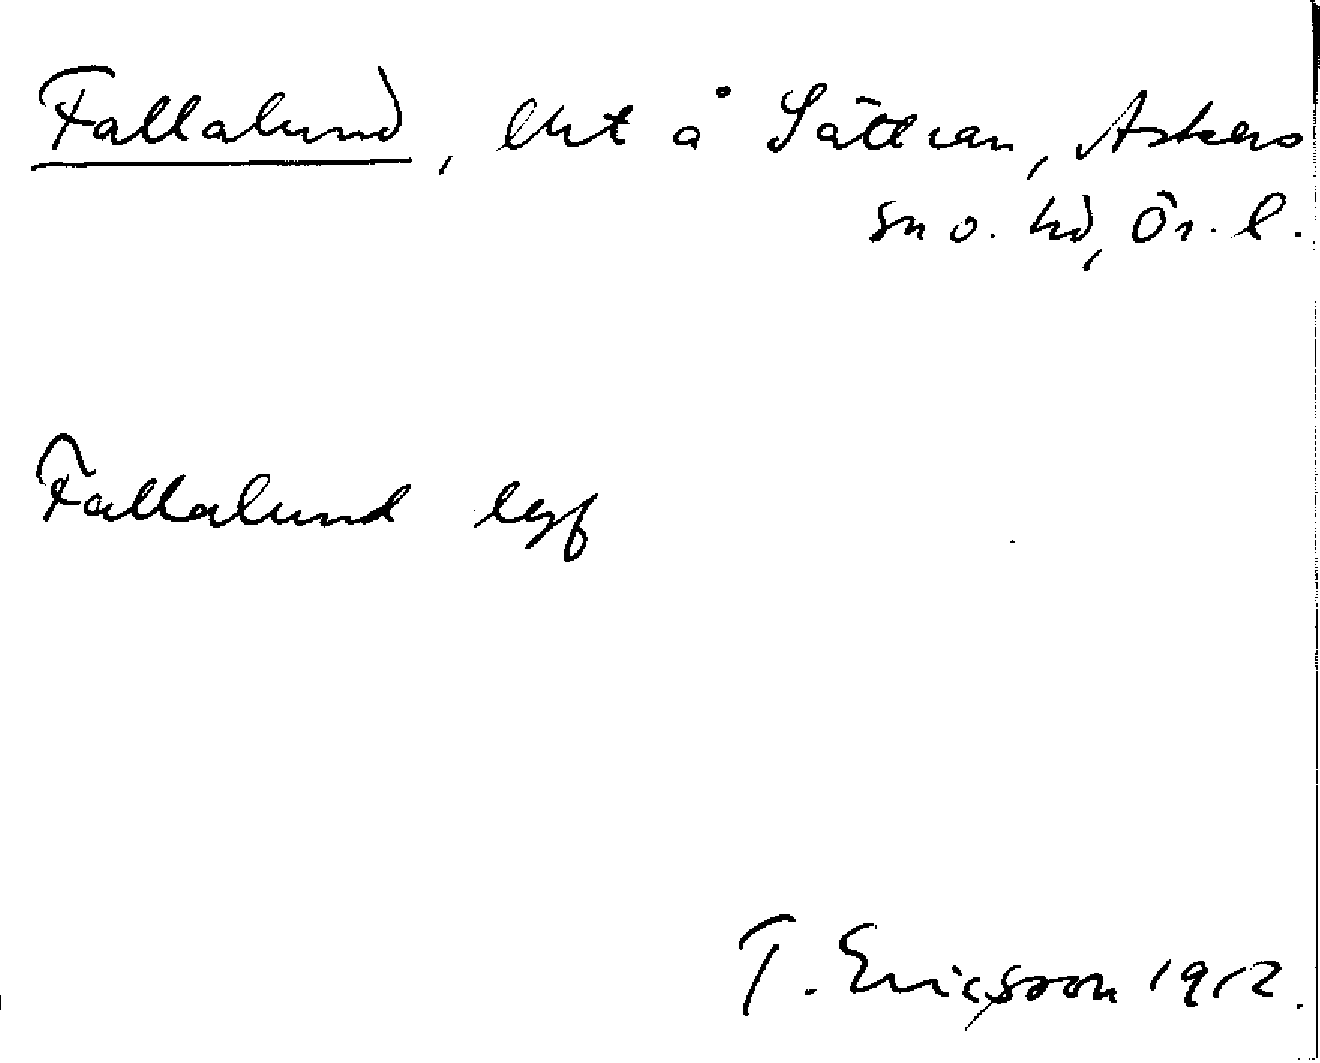 Fallalund, lht å Sättran, Askers
sn o. hd, Ör. l.
Fallalund lgf
T. Ericsson 1912.